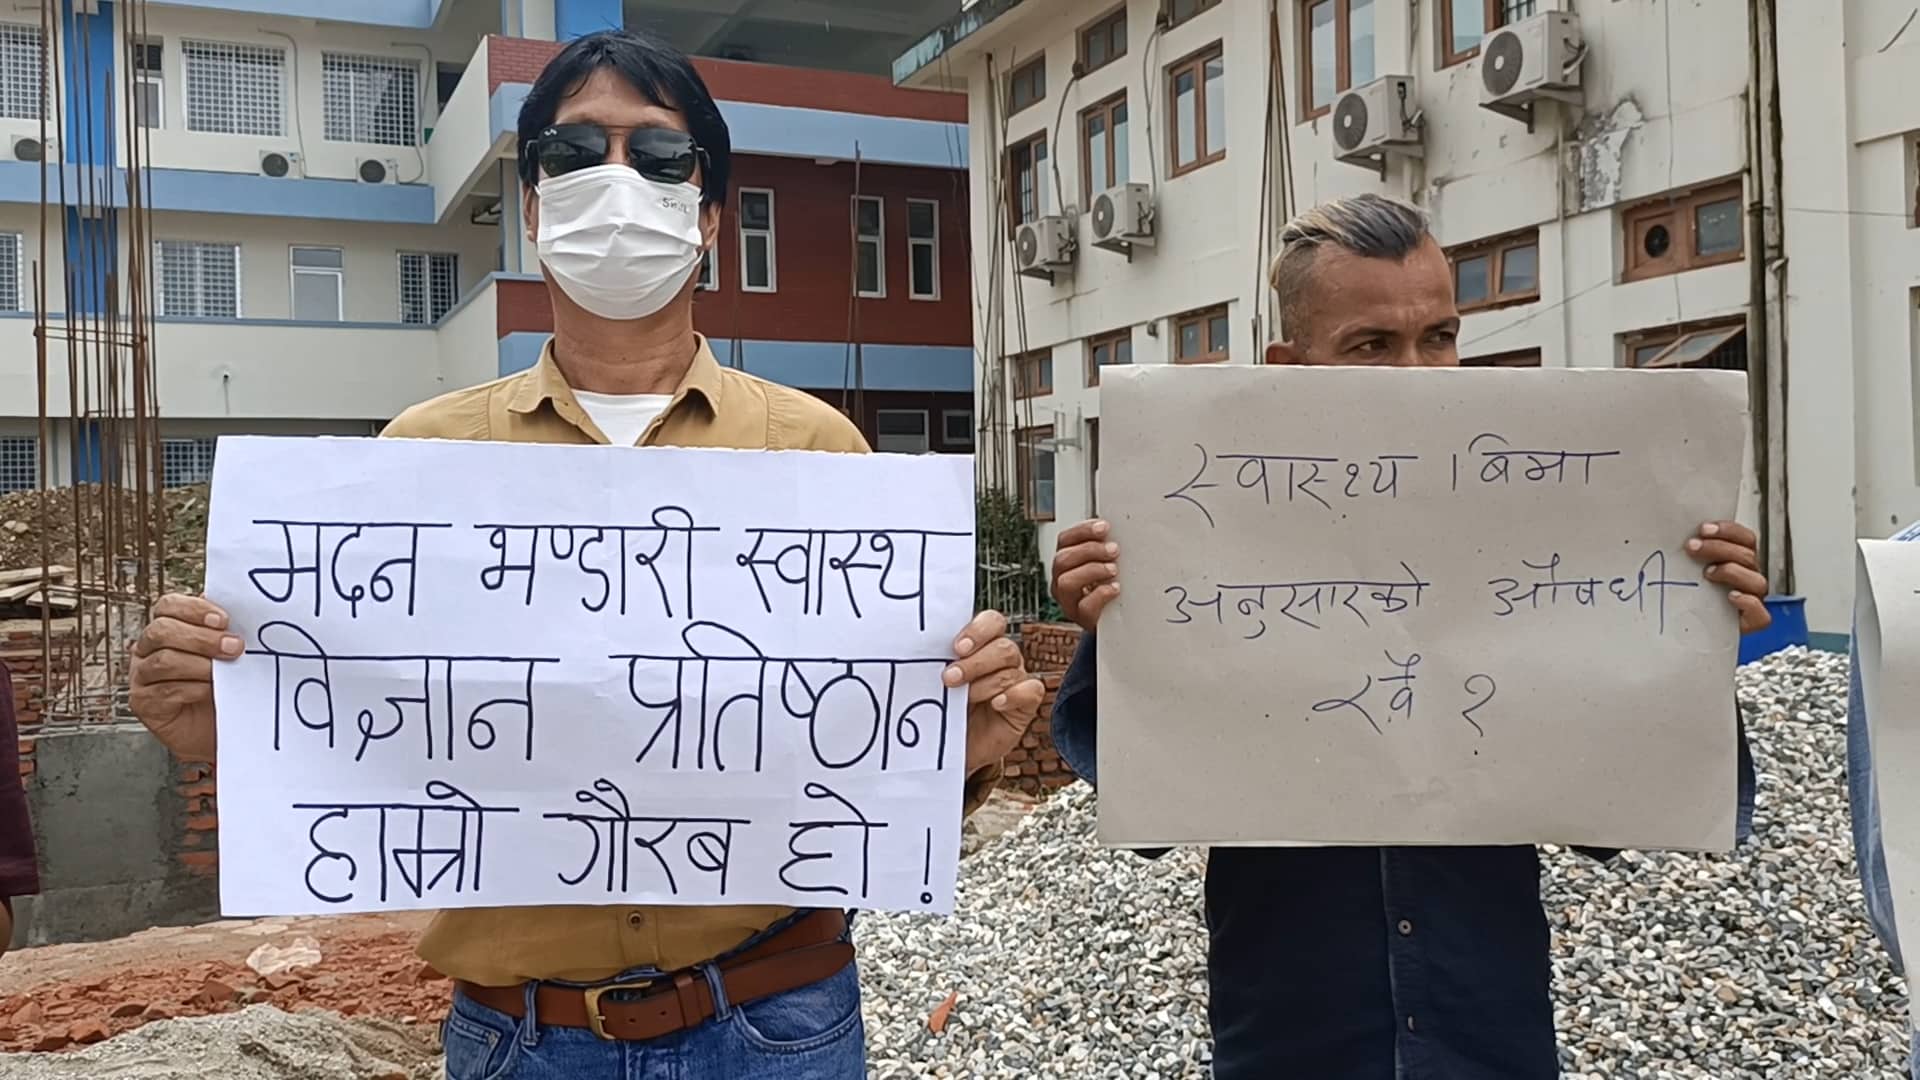 मदन भण्डारी स्वास्थ्य
विज्ञान प्रतिष्ठान
हाम्रो गौरब हो !
स्वास्थ्य बिमा
अनुसारको औषधी
ख्वै ?